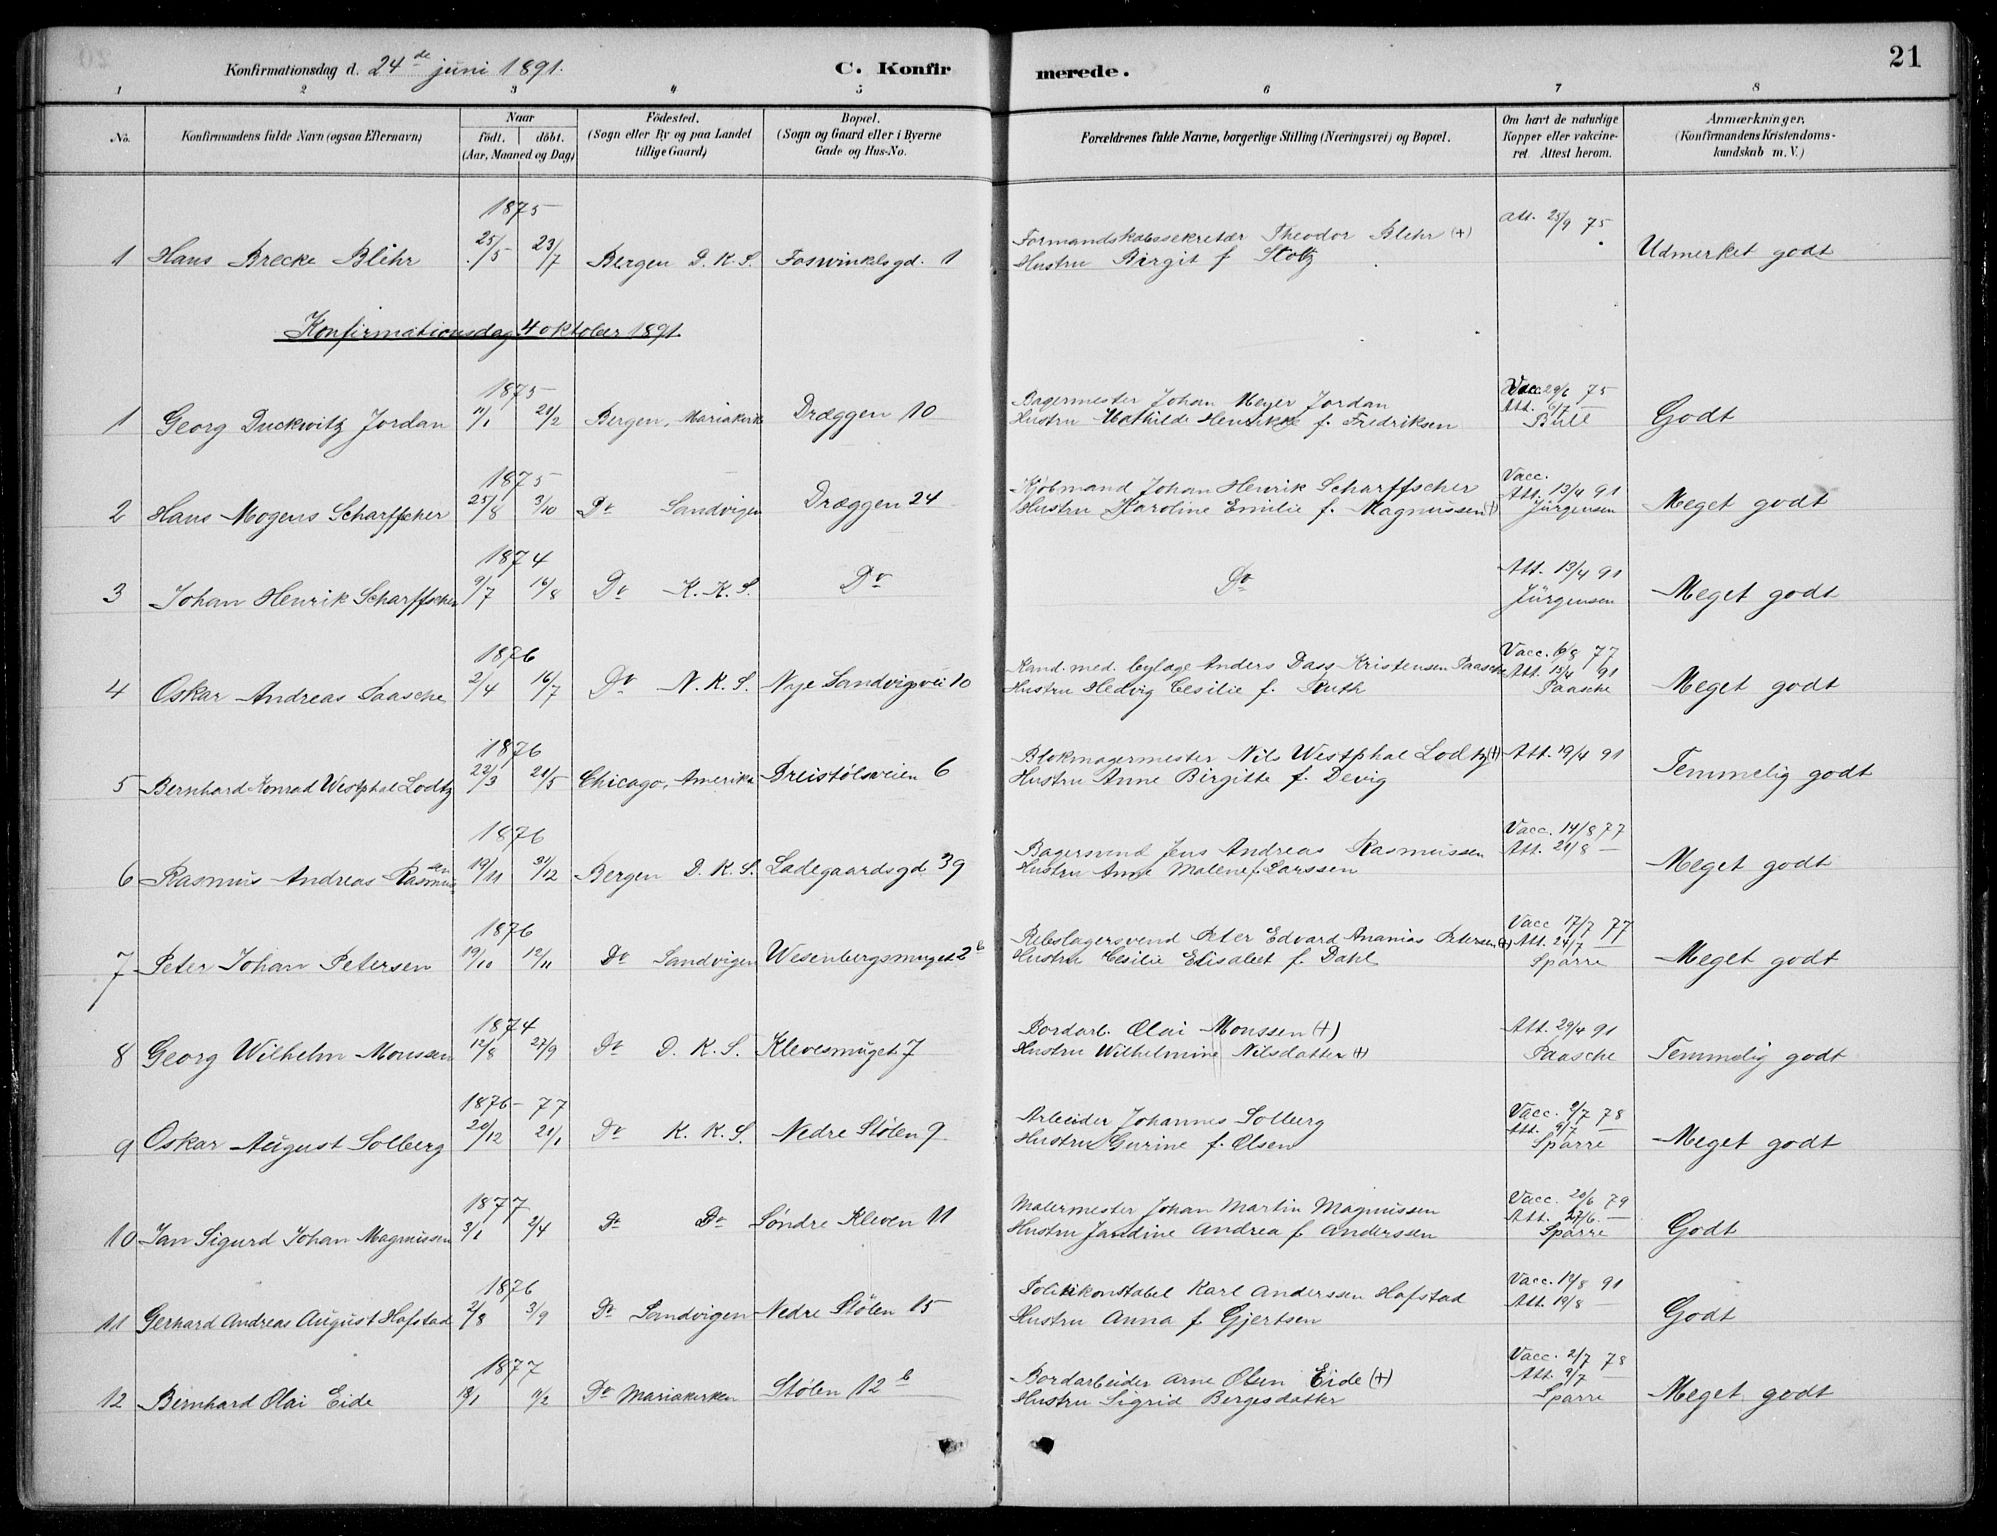 21
Konfirmationsdag d. 24de juni 1891.
C. Konfirmerede.
1 2 3 4 5 6 7 8
No.
Konfirmandens fulde Navn (ogsaa Efternavn)
Naar
födt. döbt.
(Aar, Maaned og Dag)
Födested.
(Sogn eller By og paa Landet
tillige Gaard)
Bopæl.
(Sogn og Gaard eller i Byerne
Gade og Hus-No.
Forældrenes fulde Navne, borgerlige Stilling (Næringsvei) og Bopæl.
Om havt de naturlige
Kopper eller vakcine-
ret. Attest herom.
Anmærkninger.
(Konfirmandens Kristendoms-
kundskab m. V.)
1875
Formandskabssekretær Theodor Blehr (+) Att. 25/9 75
1 Hans Brecke Blehr 25/5 23/7 Bergen D. K. S. Foswinkelsgd. 1 Hustru Birgit f. Stoltz Udmerket godt
Konfirmationsdag 4 oktober 1891.
1875
Bagermester Johan Meyer Jordan Vacc. 29/6 75
1 Georg Duckwitz Jordan 11/1 21/2 Bergen, Mariakirk Dræggen 10 Hustru Mathilde Henrikke f. Fredriksen Att. 6/7 — Godt
Bull
1875
Kjöbmand Johan Henrik Scharffscher Vacc.
2 Hans Mogens Scharffscher 25/8 3/10 Do Sandvigen Dræggen 24 Hustru Karoline Emilie f. Magnussen (+) Att. 13/4 91 Meget godt
Jürgensen
1874
3 Johan Henrik Scharffscher 9/7 16/8 Do K. K. S. Do Do Att. 13/4 91 Meget godt
Jürgensen
1876
Kand. med. læge Anders Dass Kristensen Paasche Vacc. 6/8 77
4 Oskar Andreas Paasche 2/4 16/7 Do N. K. S. Nye Sandvigsvei 10 Hustru Hedvig Cesilie f. Ruth Att. 13/4 91 Meget godt
Paasche
1876
Blokmagermester Nils Westphal Lodtz (+) Att. 19/4 91
5 Bernhard Konrad Westphal Lodtz 22/3 21/5 Chicago, Amerika Breistölsveien 6 Hustru Anne Birgitte f. Devig Temmelig godt
1876
Bagersvend Jens Andreas Rasmussen Vacc. 14/8 77
6 Rasmus Andreas Rasmussen 19/11 31/12 Bergen D. K. S. Ladegaardsgd. 39 Hustru Anne Malene f. Larssen Att. 21/8 — Meget godt
1876
Rebslagersvend Peter Edvard Ananias Petersen (+) Vacc 17/7 77
7 Peter Johan Petersen 19/10 12/11 Do Sandvigen Wesenbergsmuget 2b Hustru Cesilie Elisabet f. Dahl Att. 24/7 — Meget godt
Sparre
1874
Bordarb. Olai Monssen (+) Att. 29/4 91
8 Georg Wilhelm Monssen 12/8 27/9 Do D. K. S. Klevesmuget 7 Hustru Wilhelmine Nilsdatter (+) Paasche Temmelig godt
1876 – 77
Arbeider Johannes Solberg Vacc. 2/7 78
9 Oskar August Solberg 20/12 21/1 Do K. K. S. Nedre Stölen 9 Hustru Gurine f. Olsen Att. 9/7 — Meget godt
Sparre
1877
Malermester Johan Martin Magnussen Vacc. 20/6 79
10 Jan Sigurd Johan Magnussen 3/1 2/4 Do Do Söndre Kleven 11 Hustru Jandine Andrea f. Anderssen Att. 27/6. — Godt
Sparre
1876
Politikonstabel Karl Anderssen Hafstad Vacc. 12/8 91
11 Gerhard Andreas August Hafstad 2/8 3/9 Do Sandvigen Nedre Stölen 15 Hustru Anna f. Gjertsen Att. 19/8 — Godt
1877
Bordarbeider Arne Olsen Eide (+) Vacc. 2/7 78
12 Bernhard Olai Eide 18/1 11/2 Do Mariakirken Stölen 12 b Hustru Sigrid Bergesdatter Att. 9/7 — Meget godt
Sparre